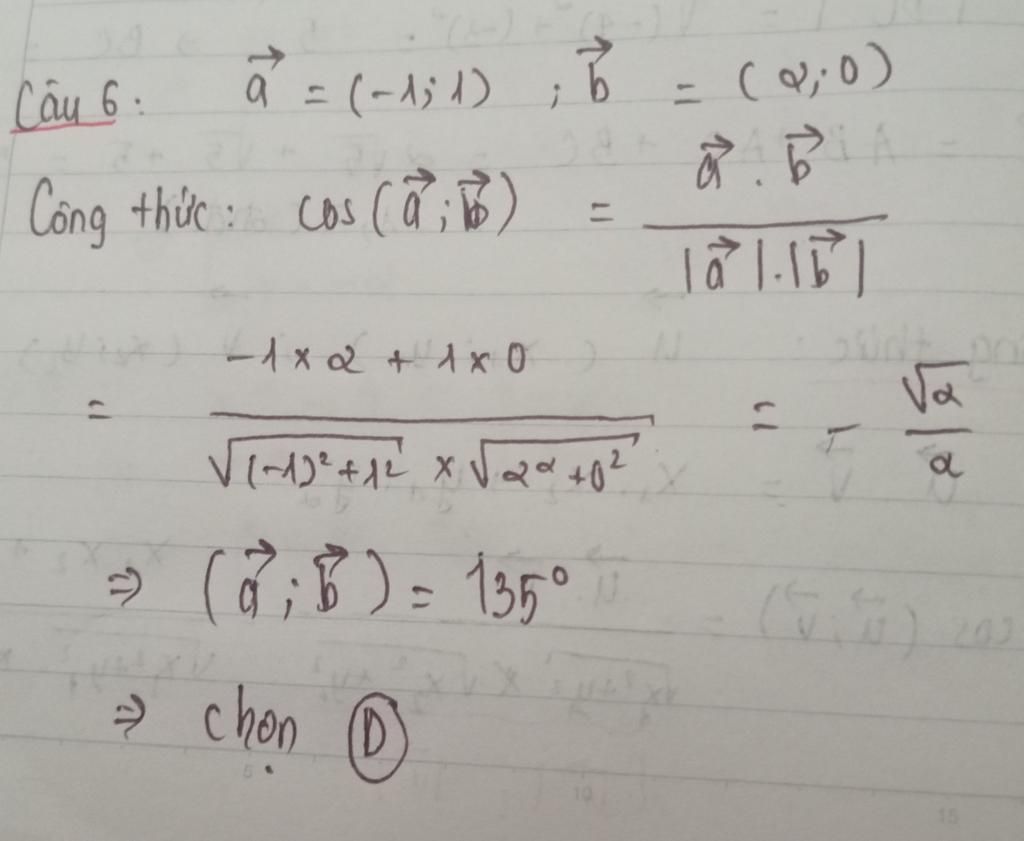 Câu 6: a⃗ = (-1; 1) ; b⃗ = (2; 0)
Công thức: cos(a⃗; b⃗) = a⃗ . b⃗ / |a⃗|.|b⃗|
= -1 × 2 + 1 × 0 / √((-1)² + 1²) × √(2² + 0²) = - √2 / 2
⇒ (a⃗; b⃗) = 135°
⇒ chọn D
5 10 15